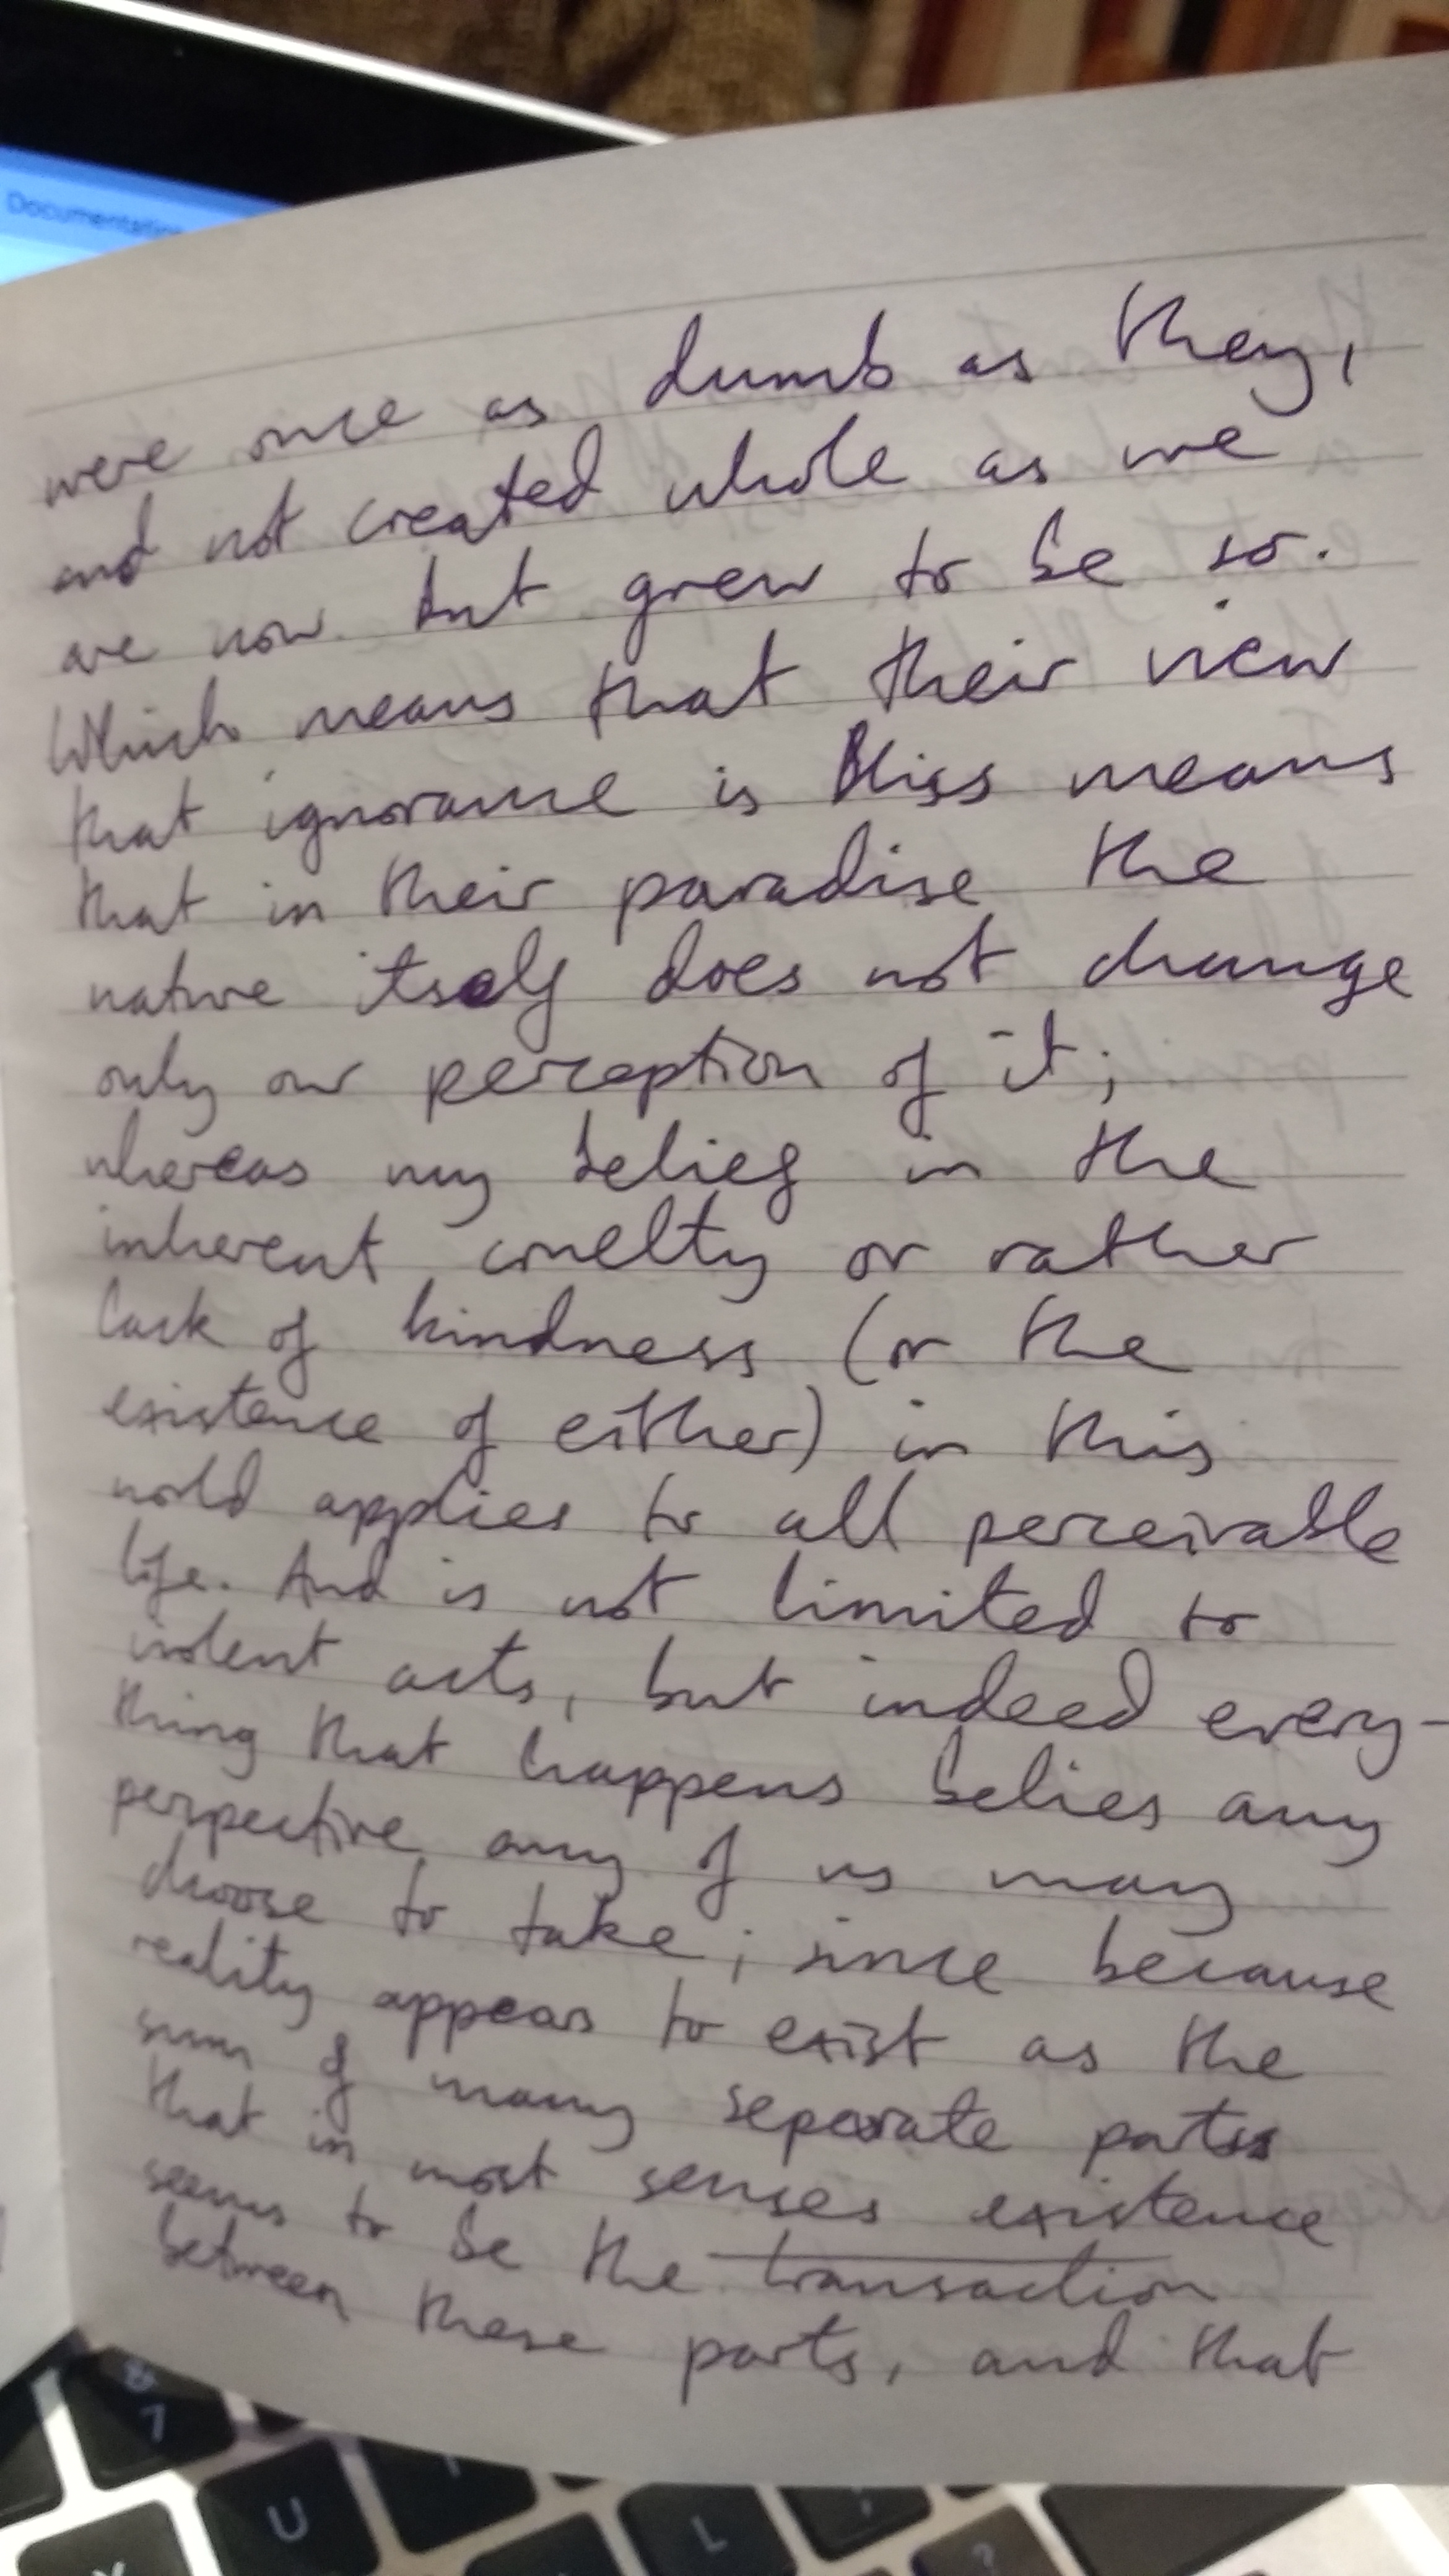 Documentation
were once as dumb as they,
and not created whole as we
are now but grew to be so.
Which means that their view
that ignorance is bliss means
that in their paradise the
nature itself does not change
only our perception of it;
whereas my belief in the
inherent cruelty or rather
lack of kindness (or the
existence of either) in this
world applies to all perceivable
life. And is not limited to
violent acts, but indeed every-
thing that happens belies any
perspective any of us may
choose to take; since because
reality appears to exist as the
sum of many separate parts
that in most senses existence
seems to be the transaction
between these parts, and that
8
7
U
L
?